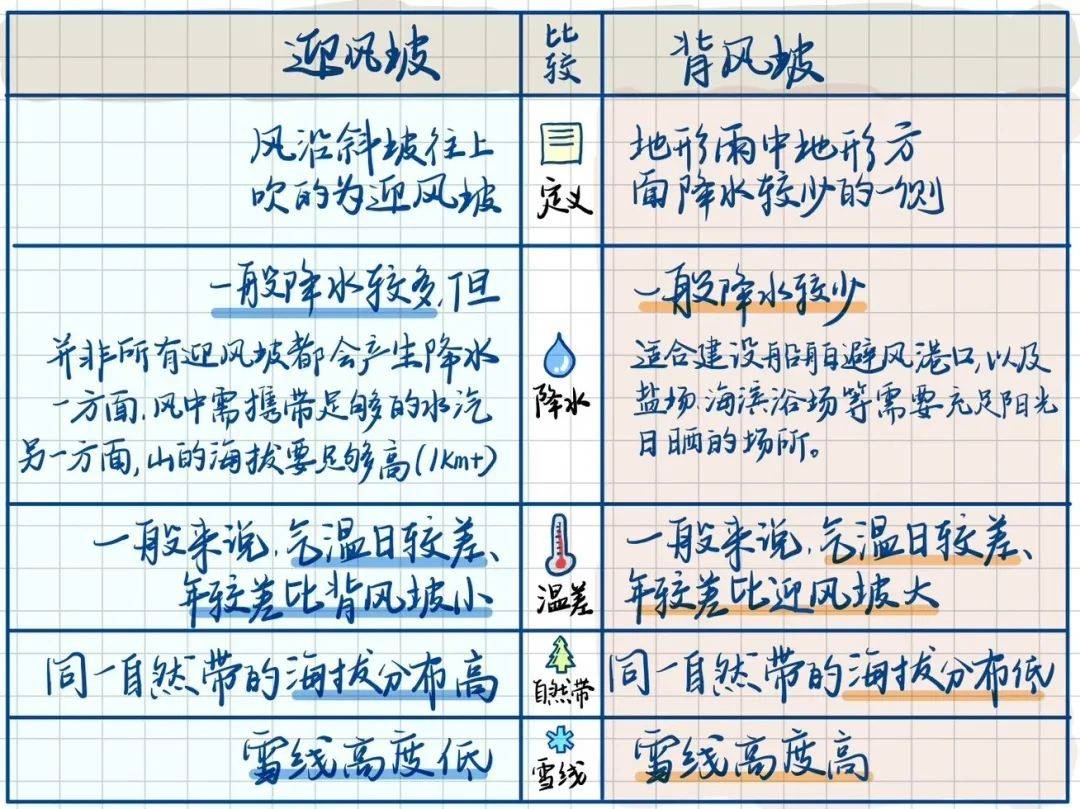 迎风坡
比较
背风坡
风沿斜坡往上
吹的为迎风坡
定义
地形雨中地形方
面降水较少的一侧
一般降水较多,但
并非所有迎风坡都会产生降水
一方面,风中需携带足够的水汽
另一方面,山的海拔要足够高(1km+)
降水
一般降水较少
适合建设船舶避风港口,以及
盐场、海滨浴场等需要充足阳光
日晒的场所。
一般来说,气温日较差、
年较差比背风坡小
温差
一般来说,气温日较差、
年较差比迎风坡大
同一自然带的海拔分布高
自然带
同一自然带的海拔分布低
雪线高度低
雪线
雪线高度高